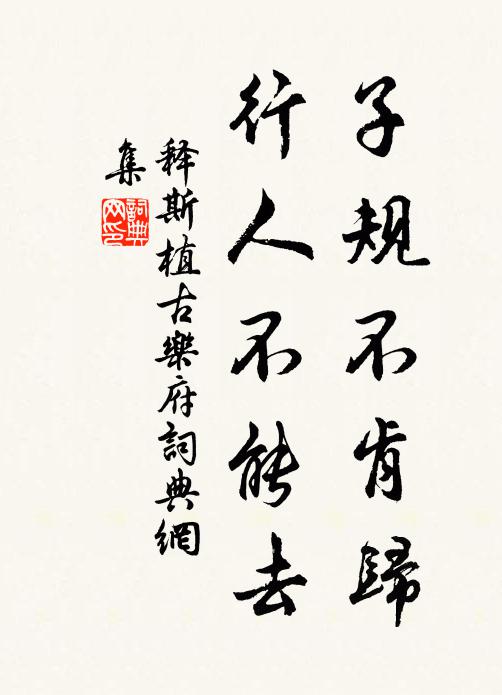 子規不肯歸
行人不能去
释斯植古樂府詞典網
集
詞典網印